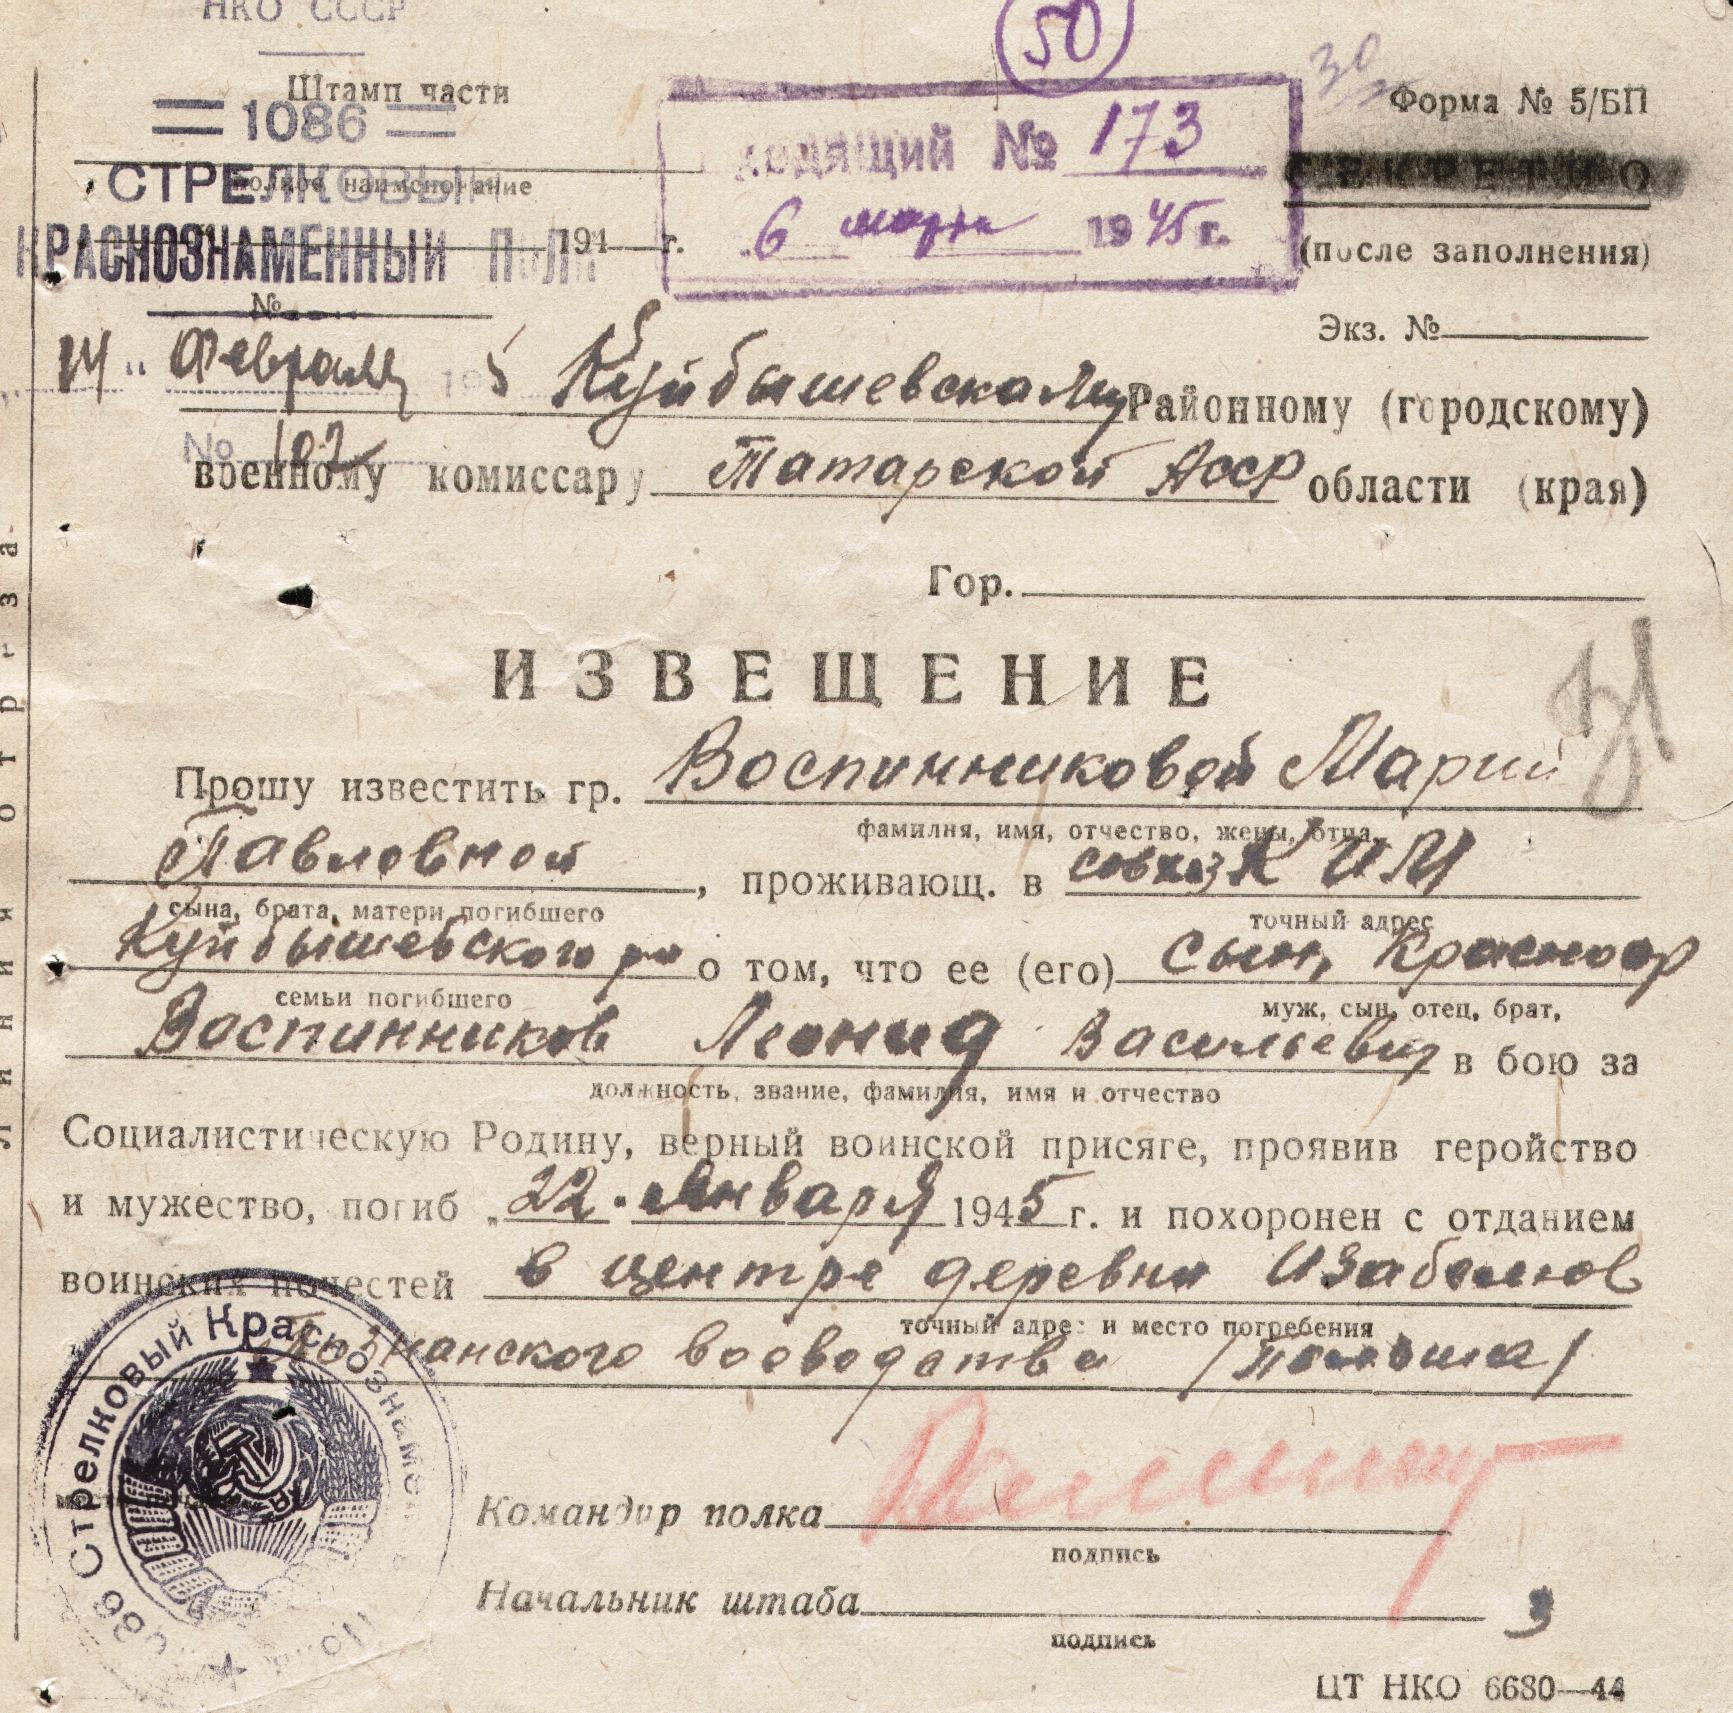 НКО СССР
50
30
Штамп части
Форма № 5/БП
= 1086 =
Входящий № 173
СЕКРЕТНО
полное наименование
СТРЕЛКОВЫЙ
6 марта 1945 г.
КРАСНОЗНАМЕННЫЙ ПОЛК
194 г.
(после заполнения)
№
Экз. №
"14" Февраля 195
Куйбышевскому Районному (городскому)
№ 107
военному комиссару Татарской АССР области (края)
Гор.
ИЗВЕЩЕНИЕ
Прошу известить гр. Воспинниковой Марии
фамилия, имя, отчество, жены, отца,
Павловной, проживающ. в совхоз КИМ
сына, брата, матери погибшего точный адрес
Куйбышевского р-на о том, что ее (его) сын, Красноар
семьи погибшего муж, сын, отец, брат,
Воспинников Леонид Васильевич в бою за
должность, звание, фамилия, имя и отчество
Социалистическую Родину, верный воинской присяге, проявив геройство
и мужество, погиб „22" Января 1945 г. и похоронен с отданием
воинских почестей в центре деревни Изабелов
точный адрес и место погребения
Познанского воеводства /Польша/
Командир полка
подпись
Начальник штаба
подпись
ЦТ НКО 6680—44
Линия отреза
Стрелковый Краснознамен